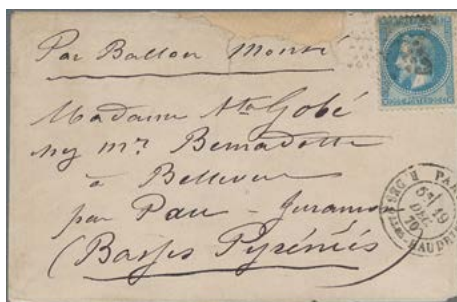 Par Ballon Monté
Madame Ate Gobé
Mr Bernadotte
à Bellevue
par Pau - Jurançon
(Basses Pyrénées)
PAR
6E/ 19
DEC
70